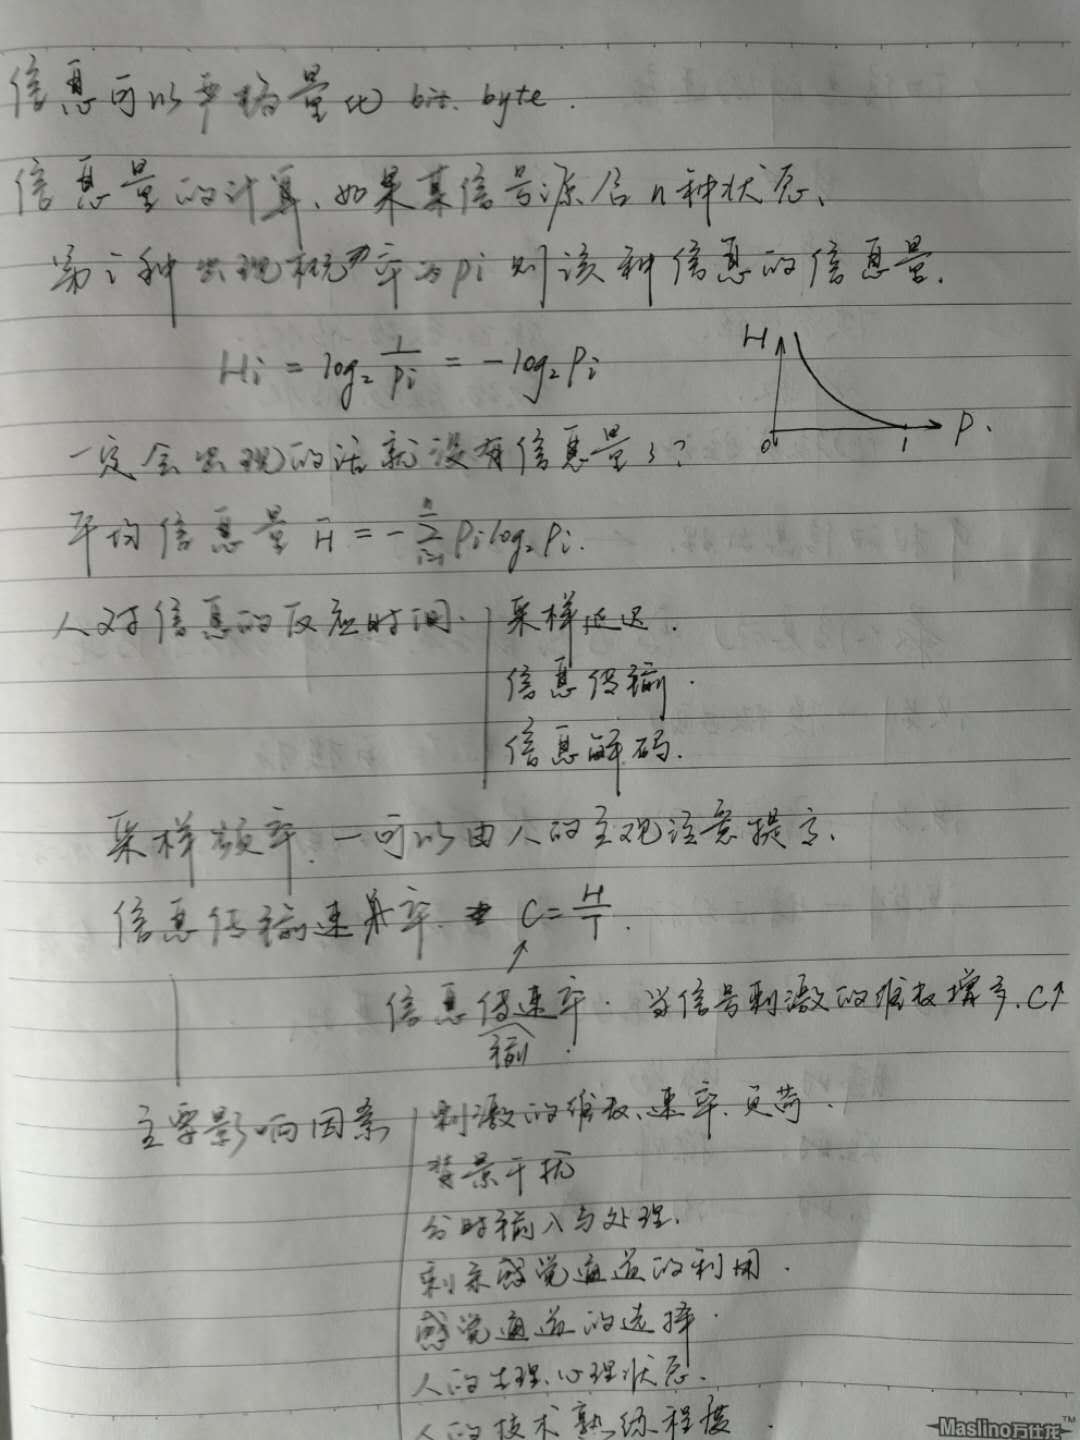 信息可以严格量化 bit. byte.
信息量的计算、如果某信号源含n种状态、
第i种出现概率为pi则该种信息的信息量.
Hi = log₂ 1/pi = -log₂ Pi
H
0 1 P.
一定会出现的话就没有信息量了?
平均信息量 H̄ = -∑ⁿᵢ₌₁ Pi log₂ Pi.
人对信息的反应时间. 采样延迟.
信息传输.
信息解码.
采样频率.一可以由人的主观注意提高.
信息传输速率. C = H/T.
信息传输速率. 当信号刺激的维数增多.C↑
主要影响因素 刺激的维数、速率、负荷.
背景干扰
分时输入与处理.
剩余感觉通道的利用.
感觉通道的选择.
人的生理、心理状态.
人的技术熟练程度.
Maslino万仕龙™